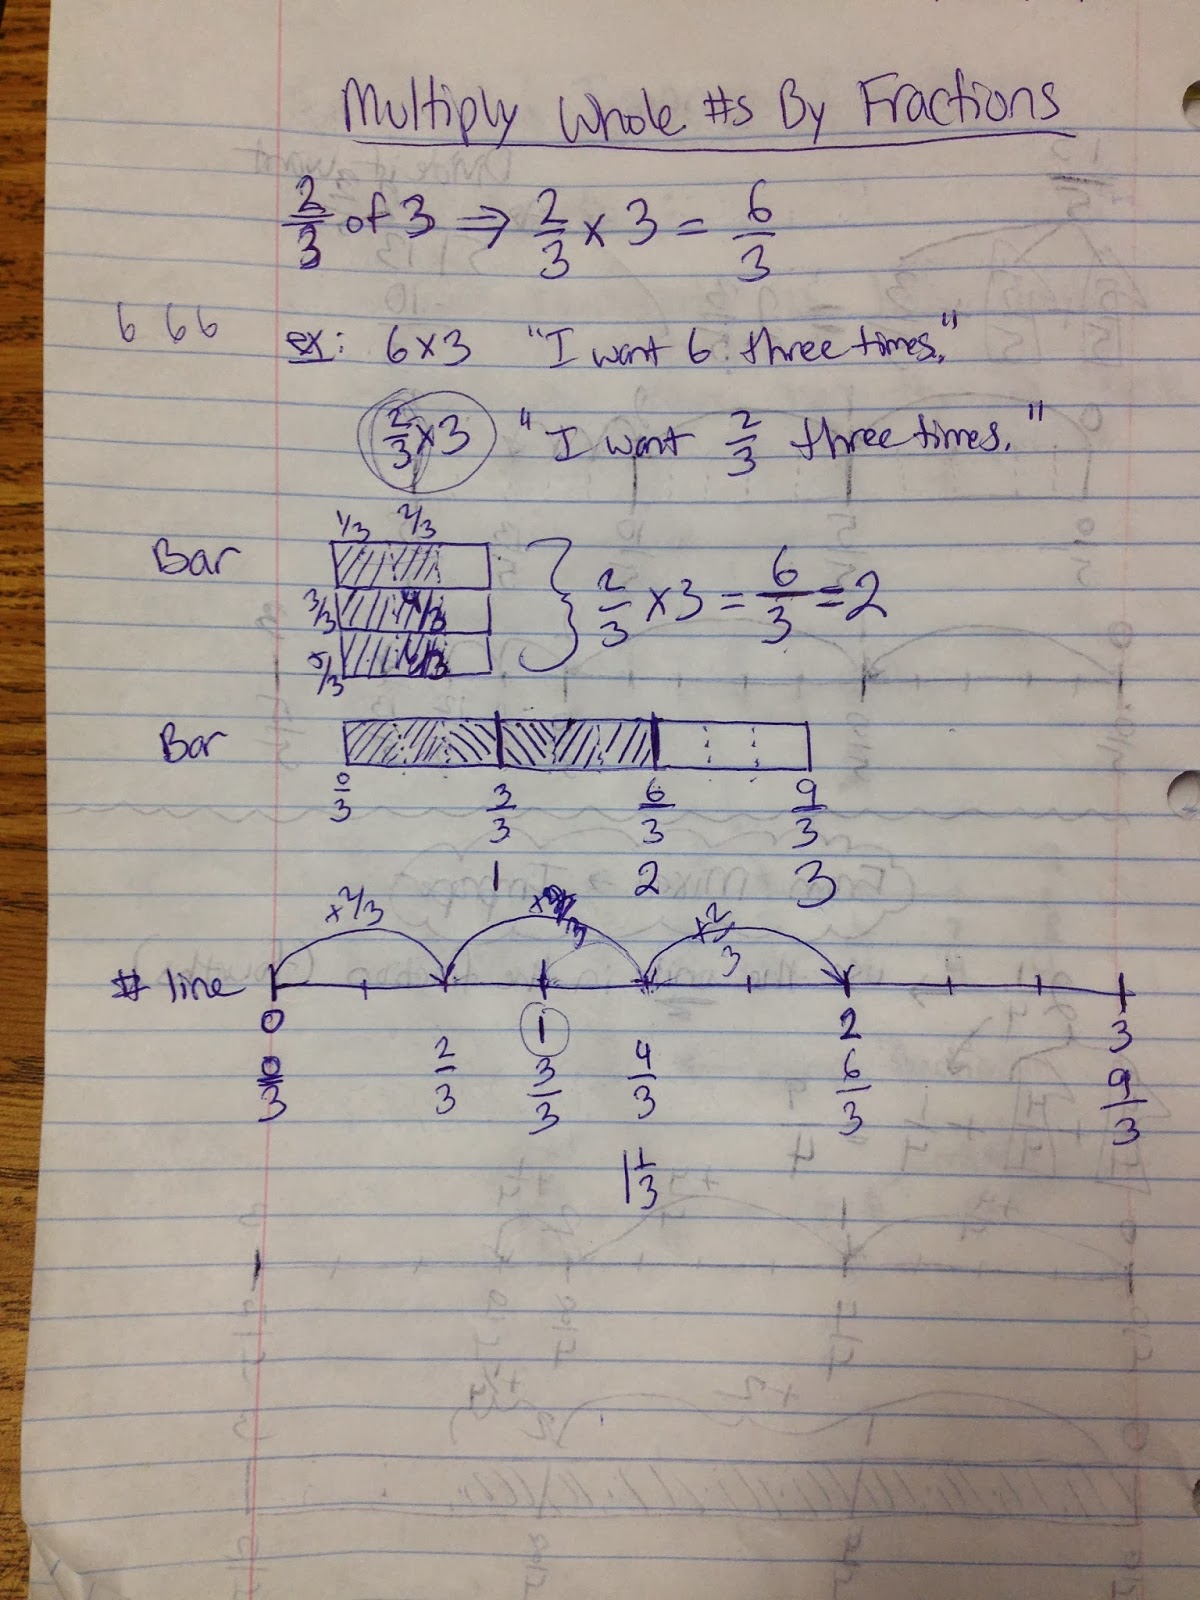 Multiply Whole #s By Fractions
2/3 of 3 ⇒ 2/3 x 3 = 6/3
6 6 6 ex: 6x3 "I want 6 three times."
2/3 x 3 "I want 2/3 three times."
1/3 2/3
Bar
3/3 4/3 } 2/3 x 3 = 6/3 = 2
5/3 6/3
Bar
0/3 3/3 6/3 9/3
1 2 3
x2/3 x2/3 x2/3
# line
0 1 2 3
0/3 2/3 3/3 4/3 6/3 9/3
1 1/3